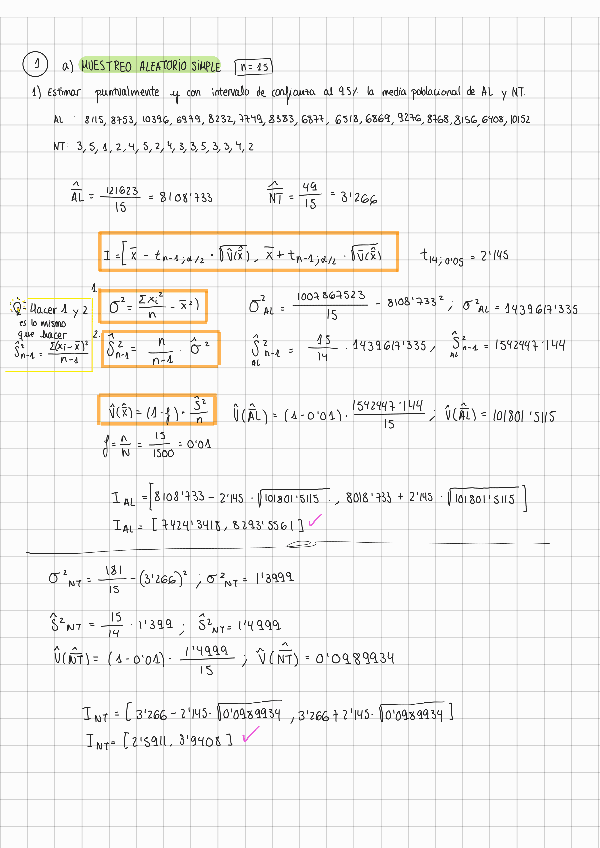 1 a) MUESTREO ALEATORIO SIMPLE n=15
1) Estimar puntualmente y con intervalo de confianza al 95% la media poblacional de AL y NT.
AL: 8115, 8753, 10396, 6979, 8232, 7749, 8383, 6877, 6518, 6869, 9276, 8768, 8156, 6408, 10152
NT: 3, 5, 1, 2, 4, 5, 2, 4, 3, 3, 5, 3, 3, 4, 2
A̅L̂ = 121623/15 = 8108'733 N̅T̂ = 49/15 = 3'266
I = [x̄ - t n-1; α/2 · √V̂(x̄̂), x̄ + t n-1; α/2 · √V̂(x̄̂)] t14; 0'05 = 2'145
1. σ² = Σxi²/n - x̄²) σ²AL = 1007867523/15 - 8108'733²; σ²AL = 1439617'335
Hacer 1 y 2
es lo mismo
que hacer
Ŝ²n-1 = Σ(xi - x̄)²/n-1
2. Ŝ²n-1 = n/n-1 · σ̂² Ŝ²n-1 AL = 15/14 · 1439617'335, Ŝ²n-1 AL = 1542447'144
V̂(x̄̂) = (1-f) · Ŝ²/n V̂(A̅L̂) = (1-0'01) · 1542447'144/15; V̂(A̅L̂) = 101801'5115
f = n/N = 15/1500 = 0'01
I AL = [8108'733 - 2'145 · √101801'5115, 8018'733 + 2'145 · √101801'5115]
I AL = [7424'3418, 8293'5561] ✓
σ²NT = 181/15 - (3'266)²; σ²NT = 1'3999
Ŝ²NT = 15/14 · 1'399; Ŝ²NT = 1'4999
V̂(N̅T̂) = (1-0'01) · 1'4999/15; V̂(N̅T̂) = 0'0989934
I NT = [3'266 - 2'145 · √0'0989934, 3'266 + 2'145 · √0'0989934]
I NT = [2'5911, 3'9408] ✓